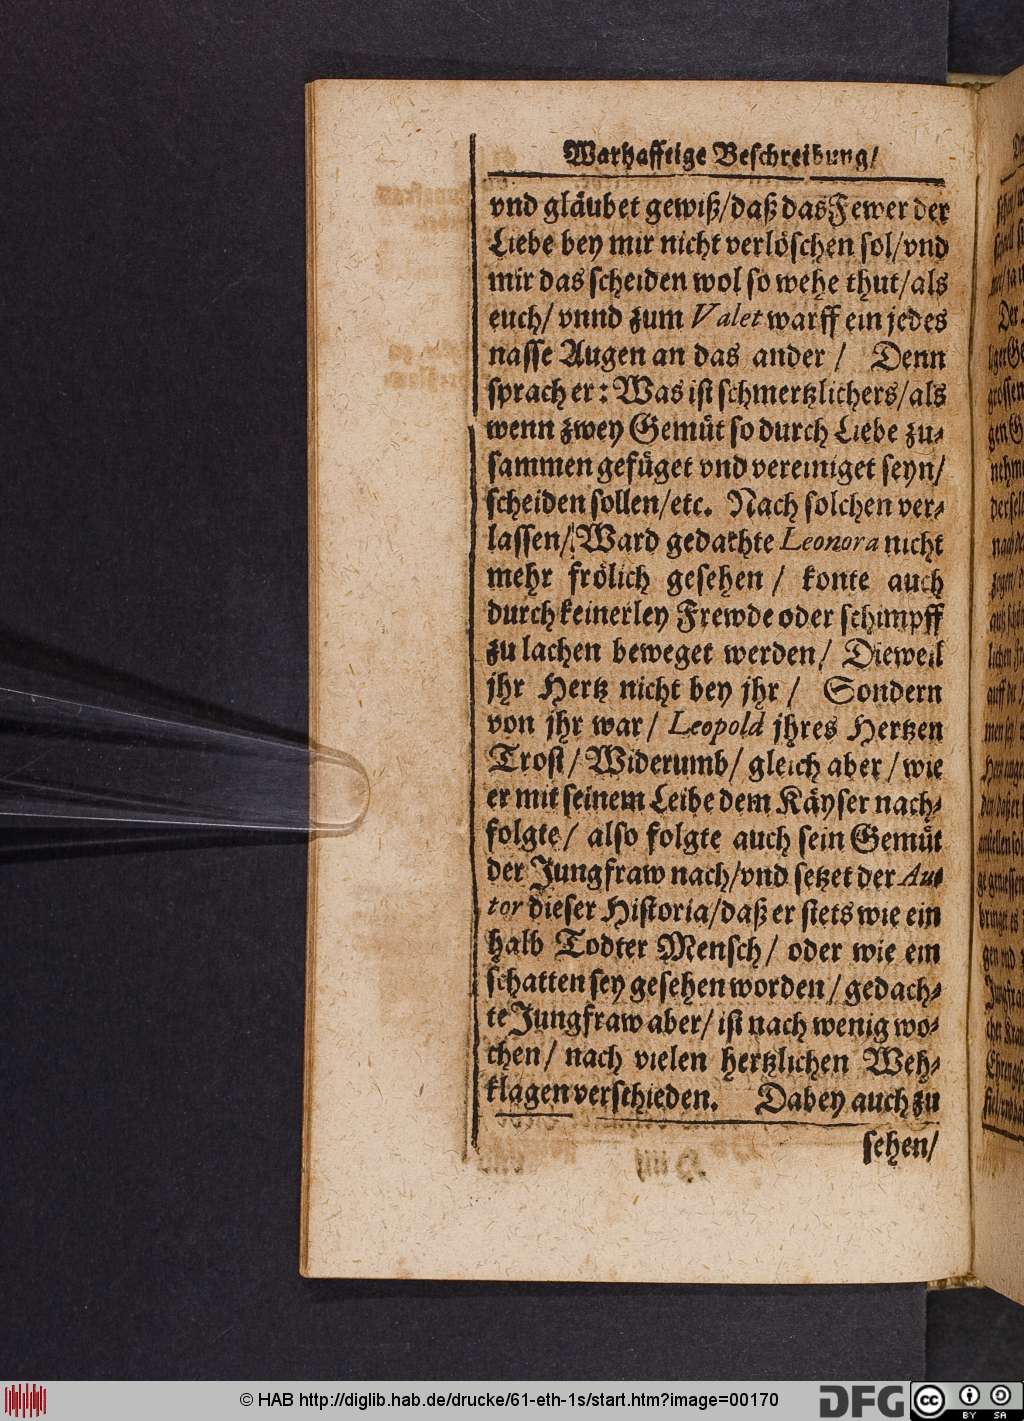 Warhafftige Beschreibung/
vnd gläubet gewiß/daß das Fewer der
Liebe bey mir nicht verlöschen sol/vnd
mir das scheiden wol so wehe thut/als
euch/ vnnd zum Valet warff ein jedes
nasse Augen an das ander / Denn
sprach er: Was ist schmertzlichers/als
wenn zwey Gemüt so durch Liebe zu-
sammen gefüget vnd vereiniget seyn/
scheiden sollen/etc. Nach solchen ver-
lassen/ Ward gedachte Leonora nicht
mehr frölich gesehen / konte auch
durch keinerley Frewde oder schimpff
zu lachen beweget werden/ Dieweil
jhr Hertz nicht bey jhr / Sondern
von jhr war/ Leopold jhres Hertzen
Trost/ Widerumb/ gleich aber / wie
er mit seinem Leibe dem Käyser nach-
folgte/ also folgte auch sein Gemüt
der Jungfraw nach/vnd setzet der Au-
tor dieser Historia/daß er stets wie ein
halb Todter Mensch/ oder wie ein
schatten sey gesehen worden / gedach-
te Jungfraw aber/ ist nach wenig wo-
chen/ nach vielen hertzlichen Weh-
klagen verschieden. Dabey auch zu
sehen/
© HAB http://diglib.hab.de/drucke/61-eth-1s/start.htm?image=00170
DFG
cc BY SA